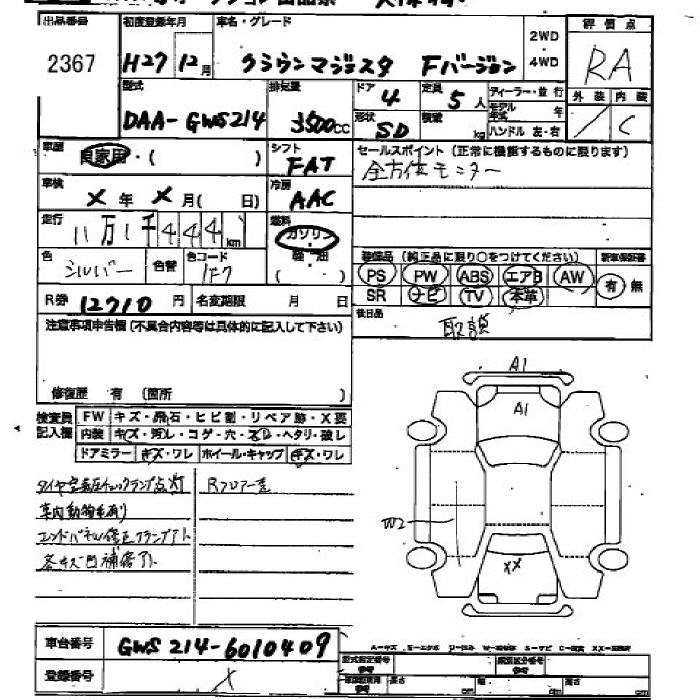 出品番号 初度登録年月 車名・グレード 評価点
2367 H27 12月 クラウンマジェスタ Fバージョン 2WD・4WD RA
型式 排気量 ドア 定員 ディーラー・並行 外装 内装
DAA-GWS214 3500cc 4 5人 モデル年式 年
形状 SD 積載 kg ハンドル 左・右 / C
車歴 自家用・( ) シフト FAT セールスポイント(正常に機能するものに限ります)
車検 X年 X月( 日) 冷房 AAC 全方位モニター
走行 11万1千444km 燃料 ガソリン・軽油( )
色 シルバー 色替 色コード 1F7 装備品(純正品に限り○をつけてください) 新車保証書
PS PW ABS エアB AW 有・無
SR ナビ TV 本革
R券 12710円 名変期限 月 日 後日品
取説
注意事項申告欄(不具合内容等は具体的に記入して下さい)
修復歴 有 (箇所 )
A1
A1
検査員記入欄 FW キズ・飛石・ヒビ割・リペア跡・X要
内装 キズ・汚レ・コゲ・穴・スレ・ヘタリ・破レ
ドアミラー キズ・ワレ ホイール・キャップ キズ・ワレ
タイヤ空気圧チェックランプ点灯 Rフロアー走
車内動物毛有り
エンドパネル修正クランプアト
各キズ凹補修アト
W2
XX
車台番号 GWS214-6010409
登録番号 X
型式指定番号 類別区分番号
長さ cm 幅 cm 高さ cm